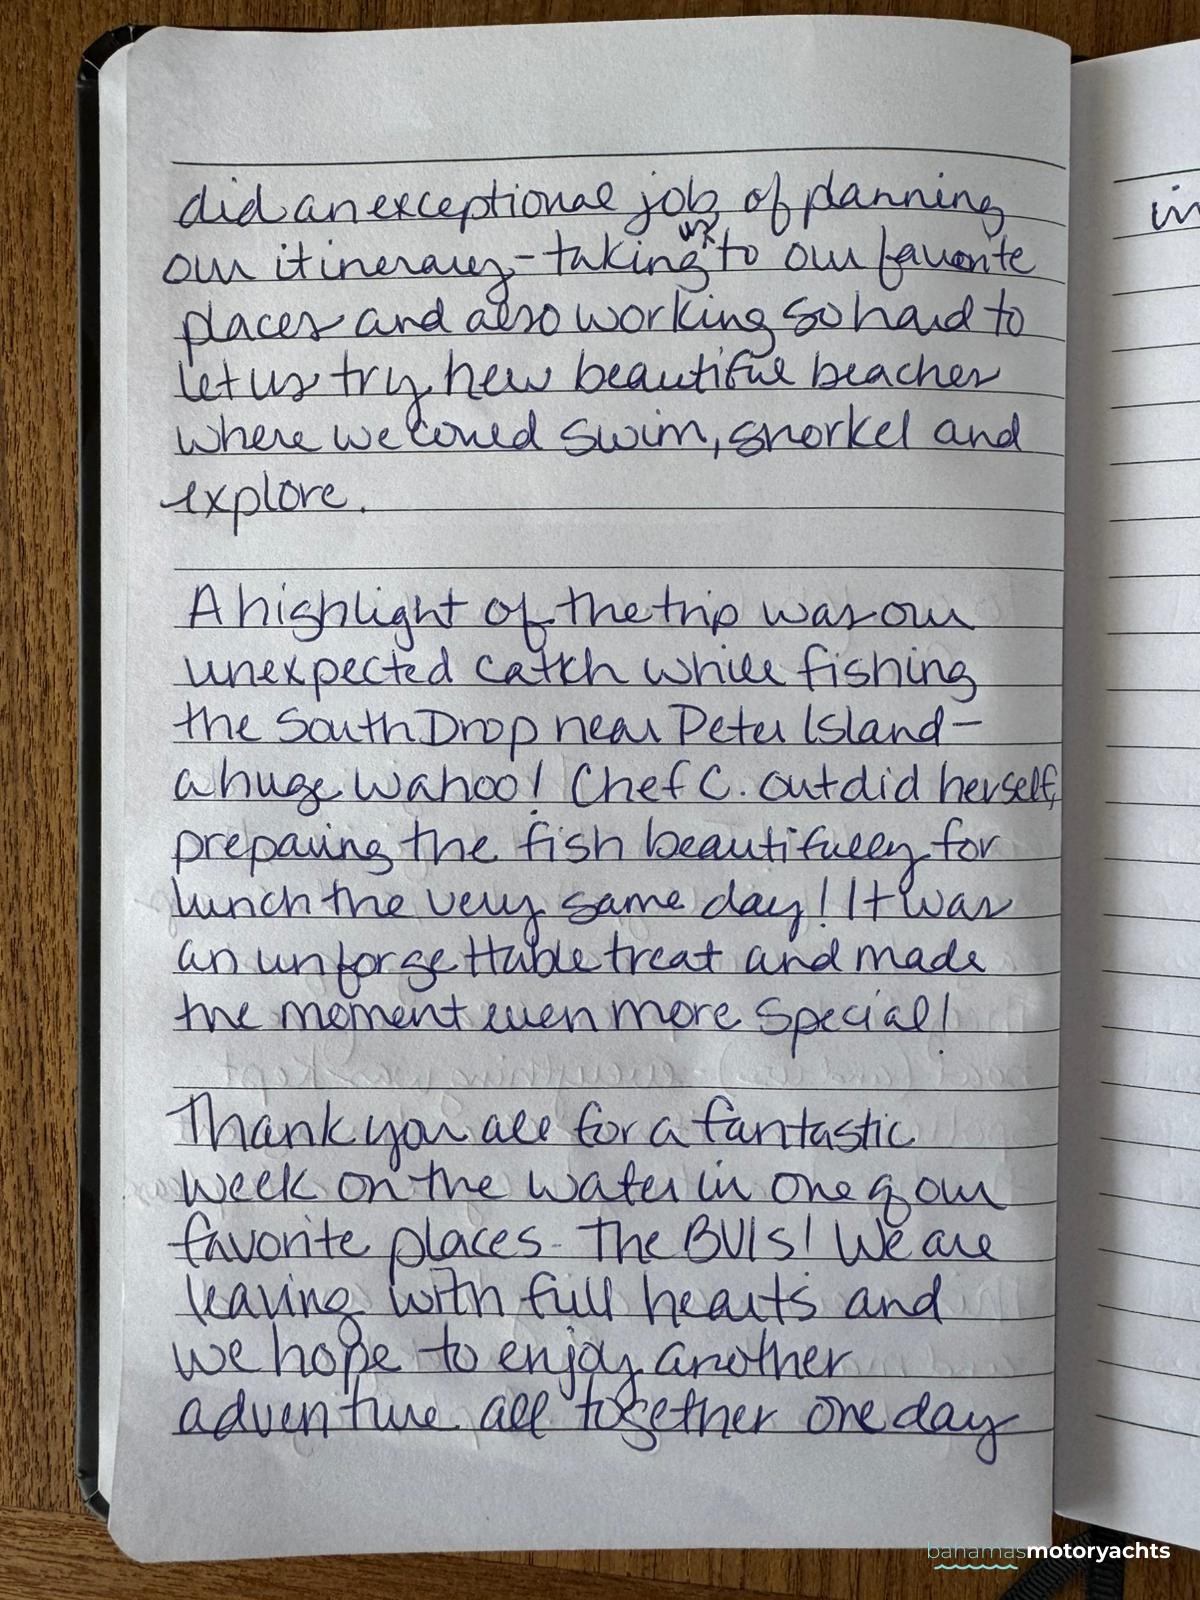 did an exceptional job of planning
our itinerary - taking us to our favorite
places and also working so hard to
let us try new beautiful beaches
where we could swim, snorkel and
explore.
A highlight of the trip was our
unexpected catch while fishing
the South Drop near Peter Island -
a huge Wahoo! Chef C. outdid herself,
preparing the fish beautifully for
lunch the very same day! It was
an unforgettable treat and made
the moment even more special!
Thank you all for a fantastic
week on the water in one of our
favorite places - The BVIs! We are
leaving with full hearts and
we hope to enjoy another
adventure all together one day
bahamasmotoryachts